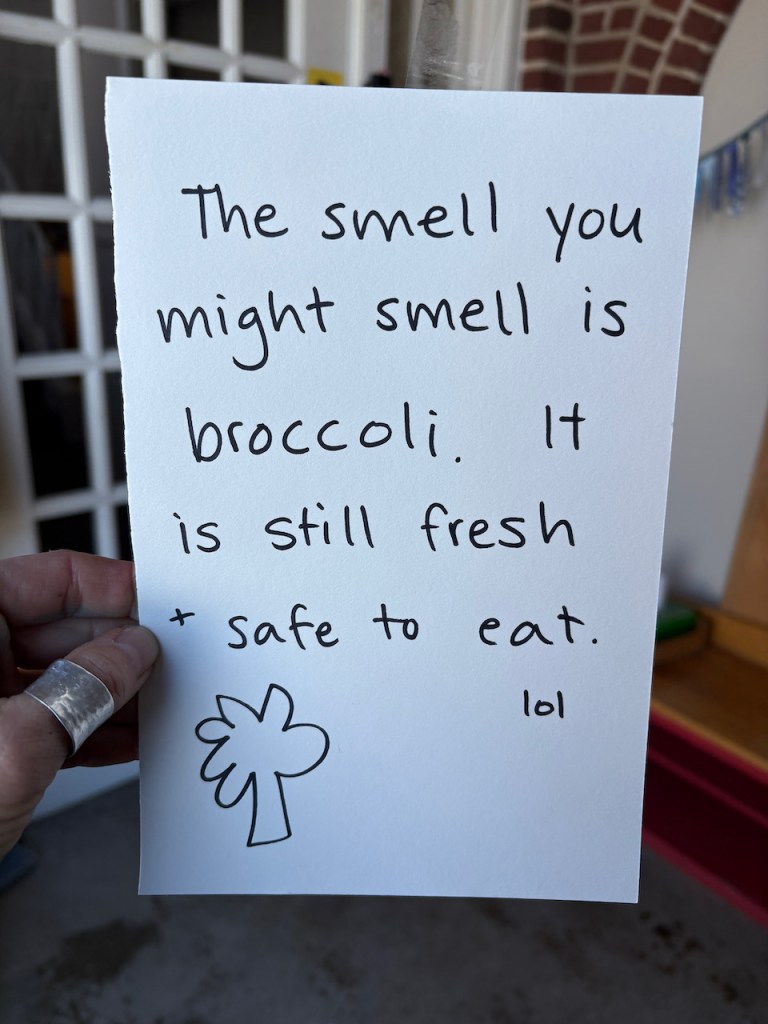 The smell you
might smell is
broccoli. It
is still fresh
+ safe to eat.
lol